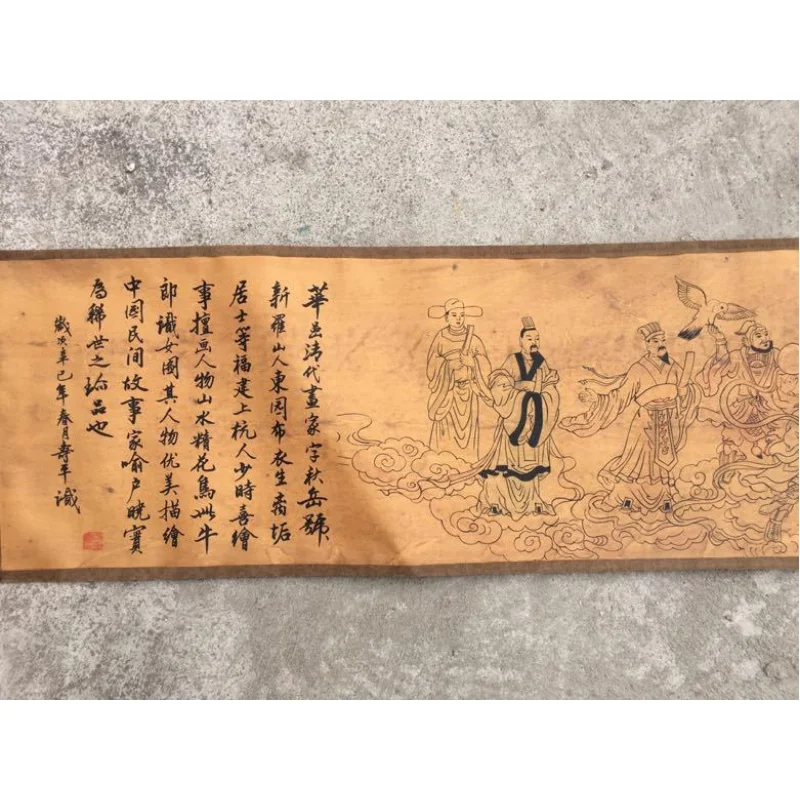 華喦清代畫家字秋岳號
新羅山人東园布衣生离垢
居士等福建上杭人少時喜繪
事擅画人物山水精花鳥此牛
郎識女圖其人物优美描繪
中國民间故事家喻户晓實
為稀世之珍品也
歲次辛巳年春月壽平識